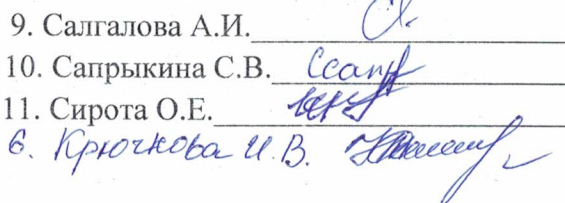 9. Салгалова А.И.
10. Сапрыкина С.В.
11. Сирота О.Е.
6. Крючкова И.В.